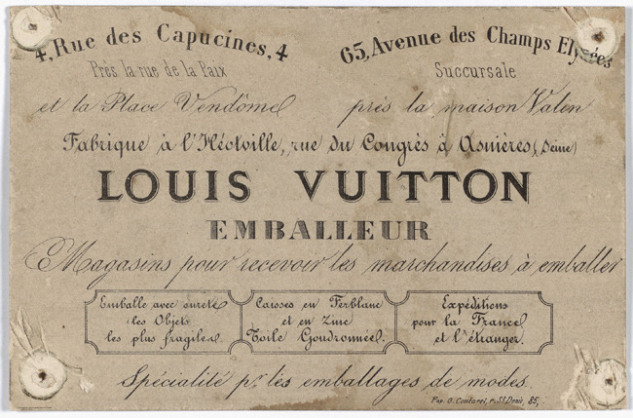 4, Rue des Capucines, 4
65, Avenue des Champs Elysées
Près la rue de la Paix
Succursale
et la Place Vendôme
près la maison Valen
Fabrique à l'Héotville, rue du Congrès à Asnières, (Seine)
LOUIS VUITTON
EMBALLEUR
Magasins pour recevoir les marchandises à emballer
Emballe avec sureté
les Objets
les plus fragiles.
Caisses en Ferblanc
et en Zinc
Toile Goudronnée.
Expéditions
pour la France
et l'étranger.
Spécialité pr. les emballages de modes.